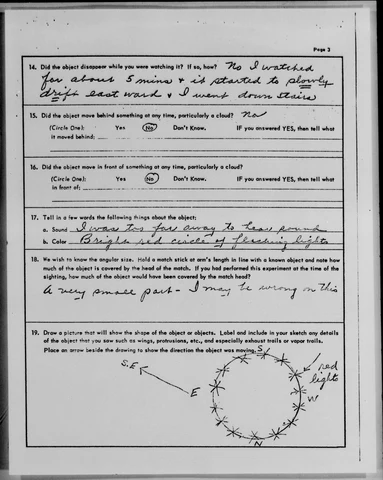 Page 3
14. Did the object disappear while you were watching it? If so, how? No I watched
for about 5 mins & it started to slowly
drift east ward & I went down stairs
15. Did the object move behind something at any time, particularly a cloud? No
(Circle One): Yes No Don't Know. IF you answered YES, then tell what
it moved behind:
16. Did the object move in front of something at any time, particularly a cloud?
(Circle One): Yes No Don't Know. IF you answered YES, then tell what
in front of:
17. Tell in a few words the following things about the object:
a. Sound I was too far away to hear sound
b. Color Bright red circle of flashing lights
18. We wish to know the angular size. Hold a match stick at arm's length in line with a known object and note how
much of the object is covered by the head of the match. If you had performed this experiment at the time of the
sighting, how much of the object would have been covered by the match head?
A very small part - I may be wrong on this
19. Draw a picture that will show the shape of the object or objects. Label and include in your sketch any details
of the object that you saw such as wings, protrusions, etc., and especially exhaust trails or vapor trails.
Place an arrow beside the drawing to show the direction the object was moving.
S
S.E
red
lights
E
W
N